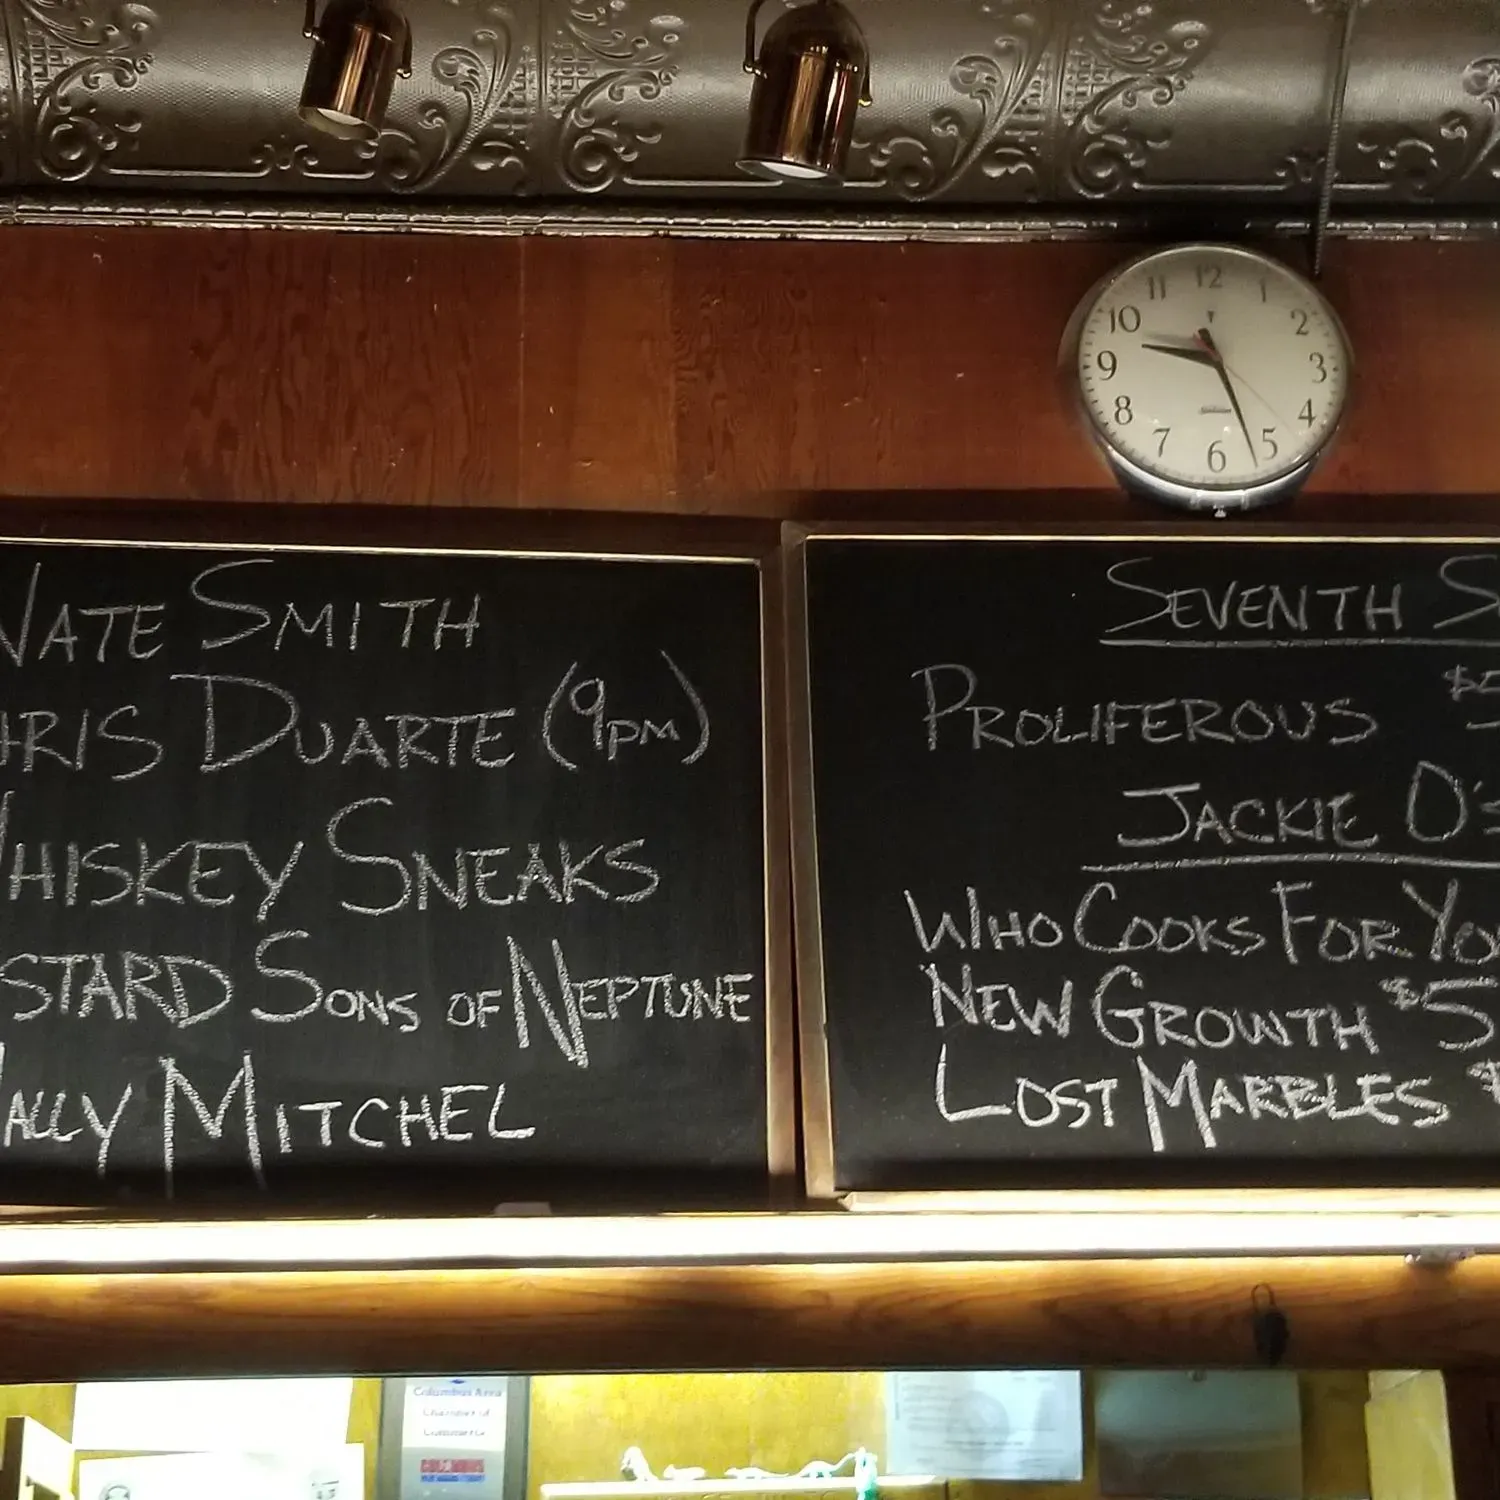 12
11
1
10
2
9
3
8
4
7
5
6
NATE SMITH
HRIS DUARTE (9PM)
WHISKEY SNEAKS
STARD SONS OF NEPTUNE
ALLY MITCHEL
SEVENTH S
PROLIFEROUS $5
JACKIE O'S
WHO COOKS FOR YOU
NEW GROWTH $5
LOST MARBLES $
Columbus Area
Chamber of
Commerce